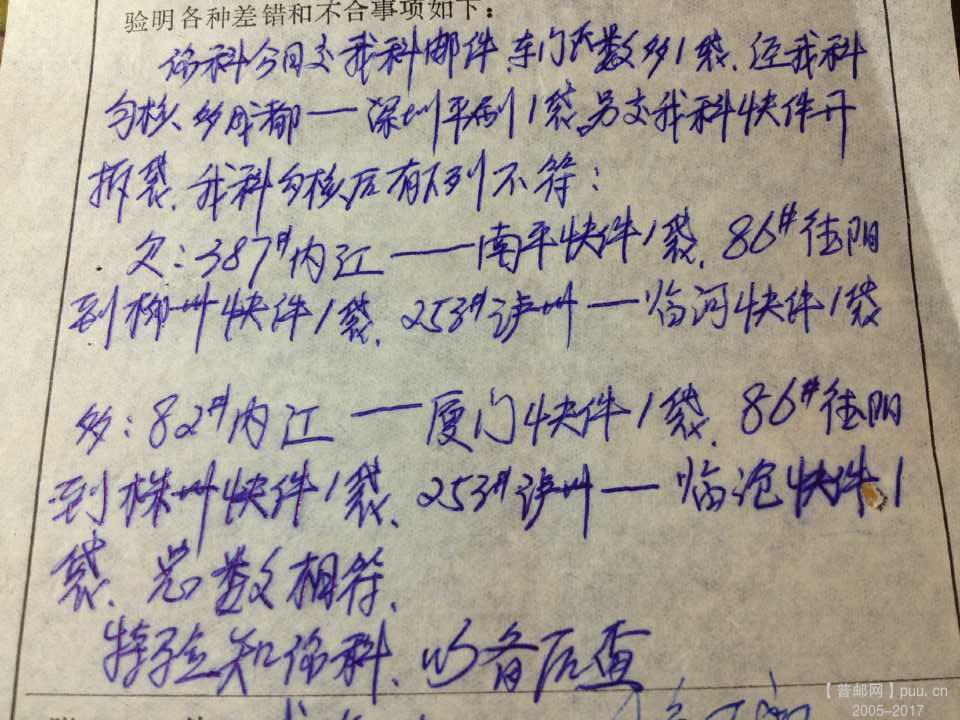 验明各种差错和不合事项如下:
你科今日交我科邮件,车门大数多1袋.经我科
勾核、多成都——深圳平刷1袋,另交我科快件开
拆袋.我科勾核后有下列不符:
欠:387#内江——南平快件1袋、86#德阳
到柳州快件1袋、253#泸州—临河快件1袋
多:82#内江——厦门快件1袋、86#德阳
到株州快件1袋、253#泸州—临沧快件1
袋、总数相符、
特验知你科、以备后查
【普邮网】puu.cn
2005-2017